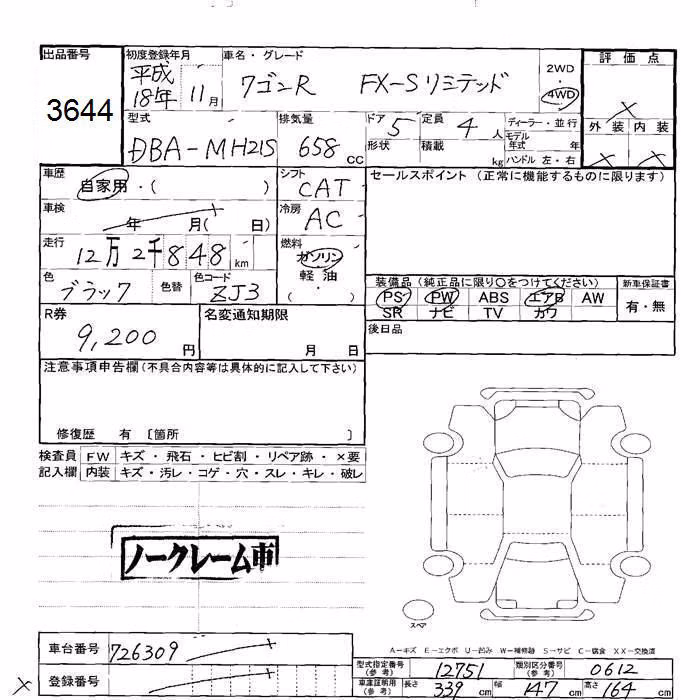 出品番号
3644
初度登録年月
平成
18年 11月
車名・グレード
ワゴンR FX-Sリミテッド
2WD
・
4WD
評価点
×
外装 内装
× ×
型式
DBA-MH21S
排気量
658 CC
ドア 5
形状
定員 4 人
積載 kg
ディーラー・並行
モデル年式 年
ハンドル 左・右
車歴
自家用・( )
シフト
CAT
セールスポイント (正常に機能するものに限ります)
車検
年 月( 日)
冷房
AC
走行
12万2千848 km
燃料
ガソリン
軽油
( ・ )
色
ブラック
色替
色コード
ZJ3
装備品(純正品に限り○をつけてください)
新車保証書
PS PW ABS エアB AW
SR ナビ TV カワ
有・無
R券
9,200 円
名変通知期限
月 日
後日品
注意事項申告欄(不具合内容等は具体的に記入して下さい)
修復歴 有 〔箇所 〕
検査員 FW キズ・飛石・ヒビ割・リペア跡・×要
記入欄 内装 キズ・汚レ・コゲ・穴・スレ・キレ・破レ
ノークレーム車
スペア
A-キズ E-エクボ U-凹み W-補修跡 S-サビ C-腐食 XX-交換済
車台番号 726309
登録番号
×
型式指定番号(参考) 12751
類別区分番号(参考) 0612
車庫証明用(参考) 長さ 339 cm 幅 147 cm 高さ 164 cm